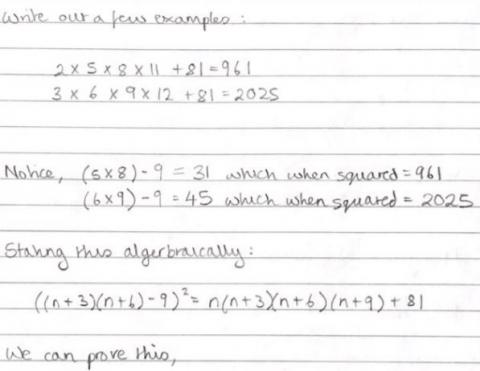 Write out a few examples:
2 × 5 × 8 × 11 + 81 = 961
3 × 6 × 9 × 12 + 81 = 2025
Notice, (5 × 8) - 9 = 31 which when squared = 961
(6 × 9) - 9 = 45 which when squared = 2025
Stating this algerbraically:
((n+3)(n+6) - 9)² = n(n+3)(n+6)(n+9) + 81
We can prove this,